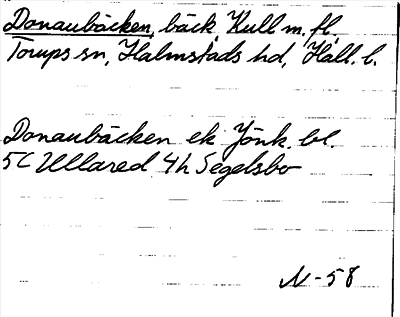 Donaubäcken, bäck, Kull m. fl.
Torups sn, Halmstads hd, Hall. l.
Donaubäcken ek Jönk. bl.
5C Ullared 4h Segelsbo
N-58